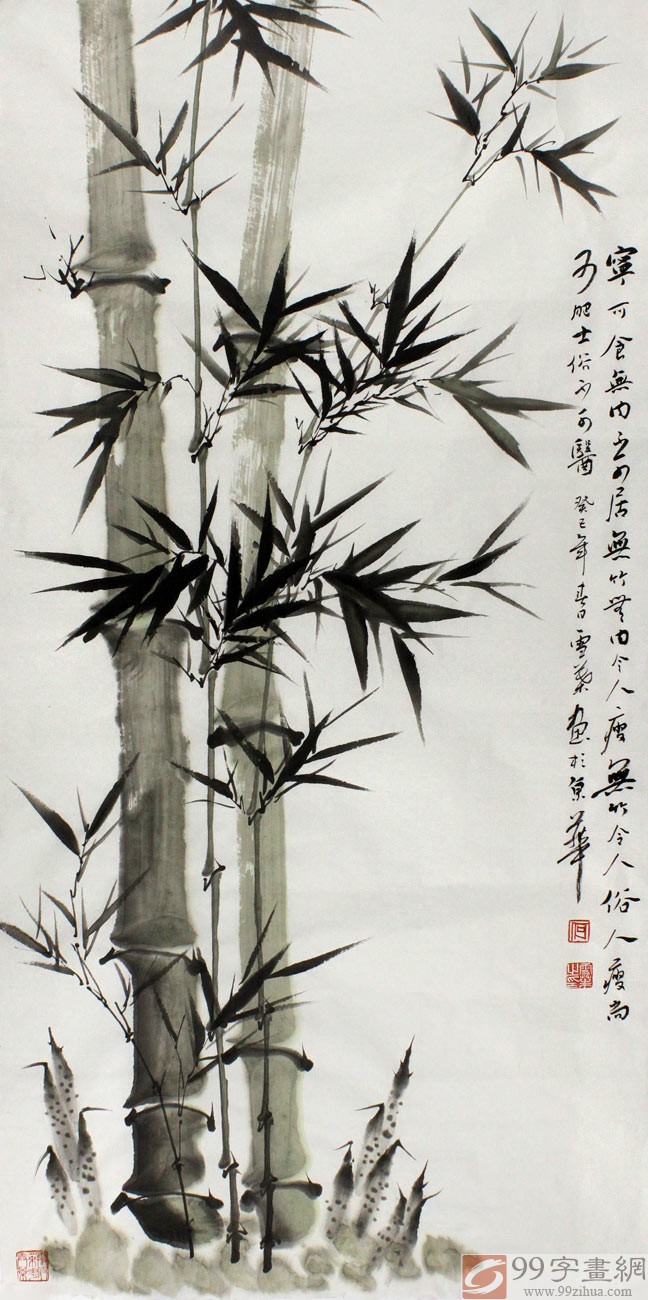 寧可食無肉不可居無竹無肉令人瘦無竹令人俗人瘦尚
可肥士俗不可醫 癸巳年春日雪葉畫於京華
99字畫網
www.99zihua.com